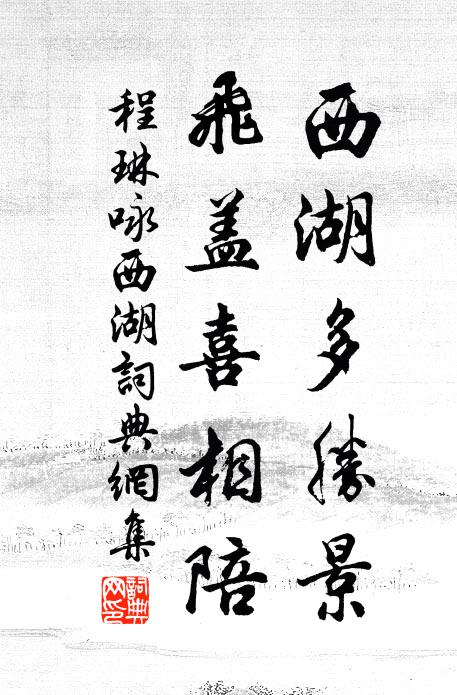 西湖多勝景
飛盖喜相陪
程琳咏西湖詞典網集
詞典网印